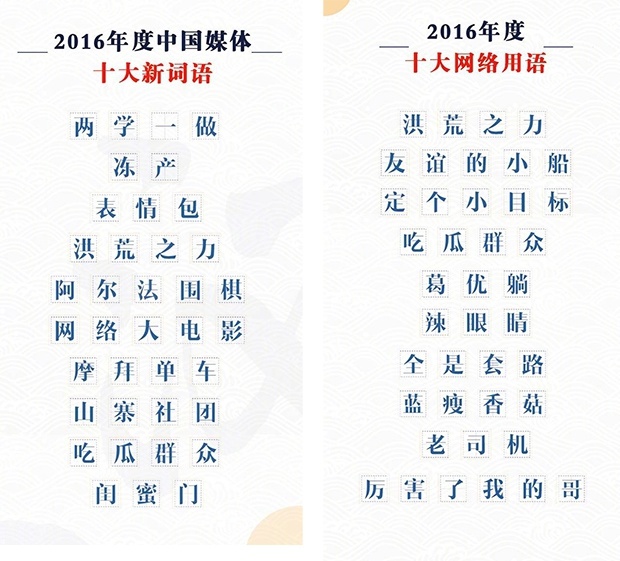 2016年度中国媒体
十大新词语
两学一做
冻产
表情包
洪荒之力
阿尔法围棋
网络大电影
摩拜单车
山寨社团
吃瓜群众
闺蜜门
2016年度
十大网络用语
洪荒之力
友谊的小船
定个小目标
吃瓜群众
葛优躺
辣眼睛
全是套路
蓝瘦香菇
老司机
厉害了我的哥